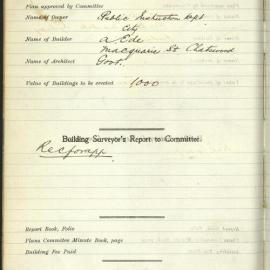 Plan approved by Committee
Name of Owner Public Instruction Dept
City
Name of Builder A. Ede
Macquarie St Chatswood
Name of Architect Govt.
Value of Buildings to be erected 1000
Building Surveyor's Report to Committee.
Rec for app.
Report Book, Folio
Plans Committee Minute Book, page
Building Fee Paid